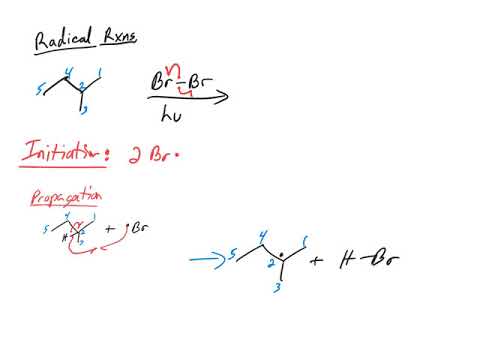 Radical Rxns
4 1
5 2
3
Br-Br
hν
Initiation: 2 Br·
Propagation
4 1
5 H 2 + ·Br
3
4 1
5 2 · + H-Br
3